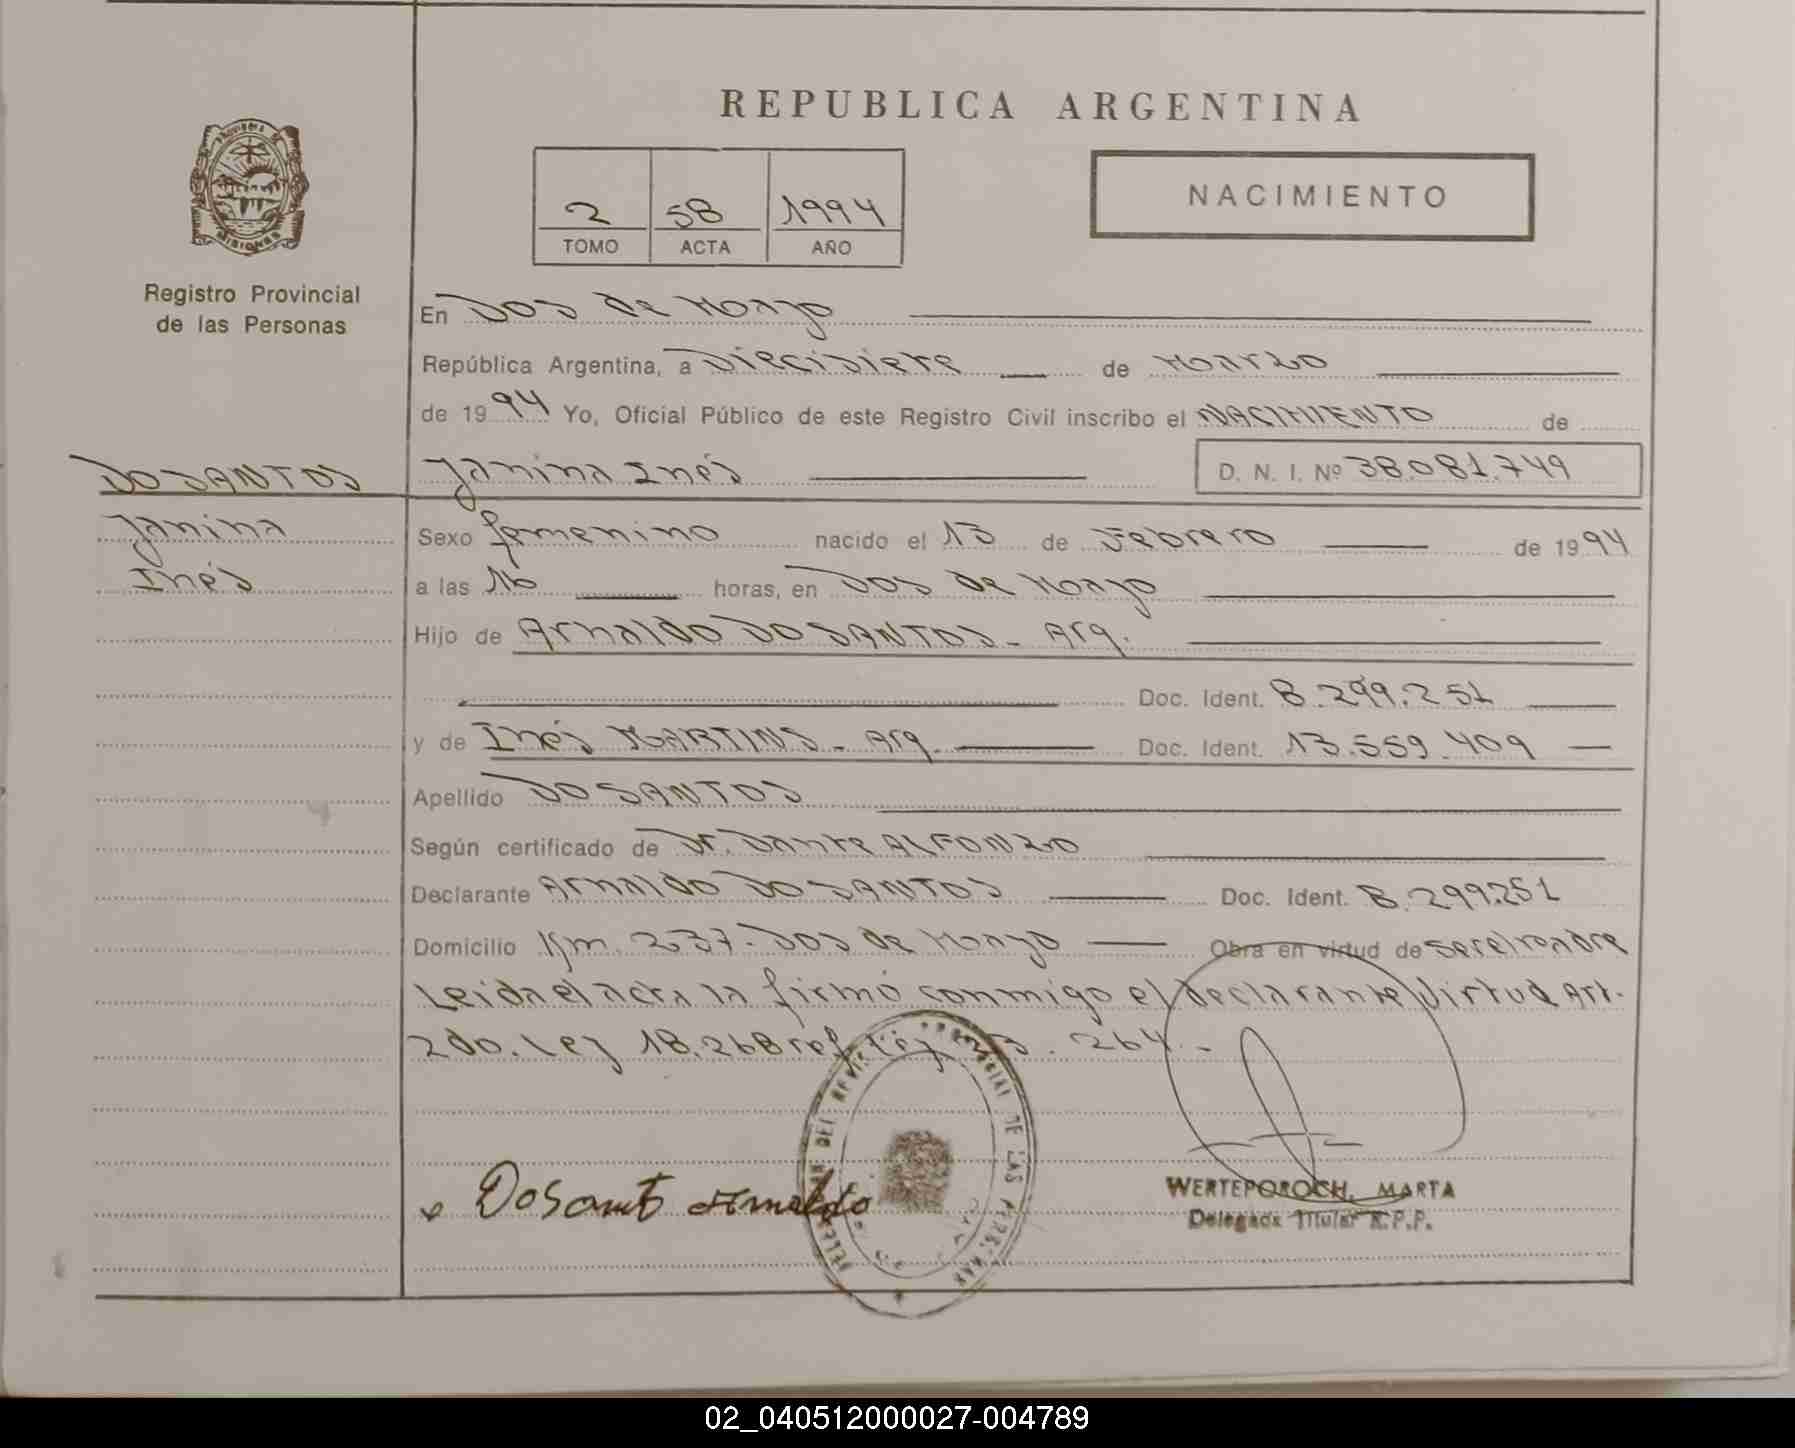 REPUBLICA ARGENTINA
NACIMIENTO
2 58 1994
TOMO ACTA AÑO
MISIONES
Registro Provincial
de las Personas
En Dos de Mayo
República Argentina, a Diecisiete de Marzo
de 1994 Yo, Oficial Público de este Registro Civil inscribo el NACIMIENTO de
DOSANTOS
Janina
Inés
Janina Inés D. N. I. Nº 38.081.749
Sexo femenino nacido el 13 de Febrero de 1994
a las 16 horas, en Dos de Mayo
Hijo de Arnaldo DOSANTOS - Arg.
Doc. Ident. 8.299.251
y de Inés MARTINS - Arg. Doc. Ident. 13.559.409
Apellido DOSANTOS
Según certificado de Dr. Dante ALFONZO
Declarante Arnaldo DOSANTOS Doc. Ident. 8.299.251
Domicilio Km. 237. Dos de Mayo Obra en virtud de
Leida el acta la firmó conmigo el declarante Virtud Art.
2do. Ley 18.248 ref. Ley 23.264.-
PROVINCIAL DE LAS PERSONAS
Dosant Arnaldo
WERTEPOROCH, MARTA
Delegada Titular R.P.P.
02_040512000027-004789